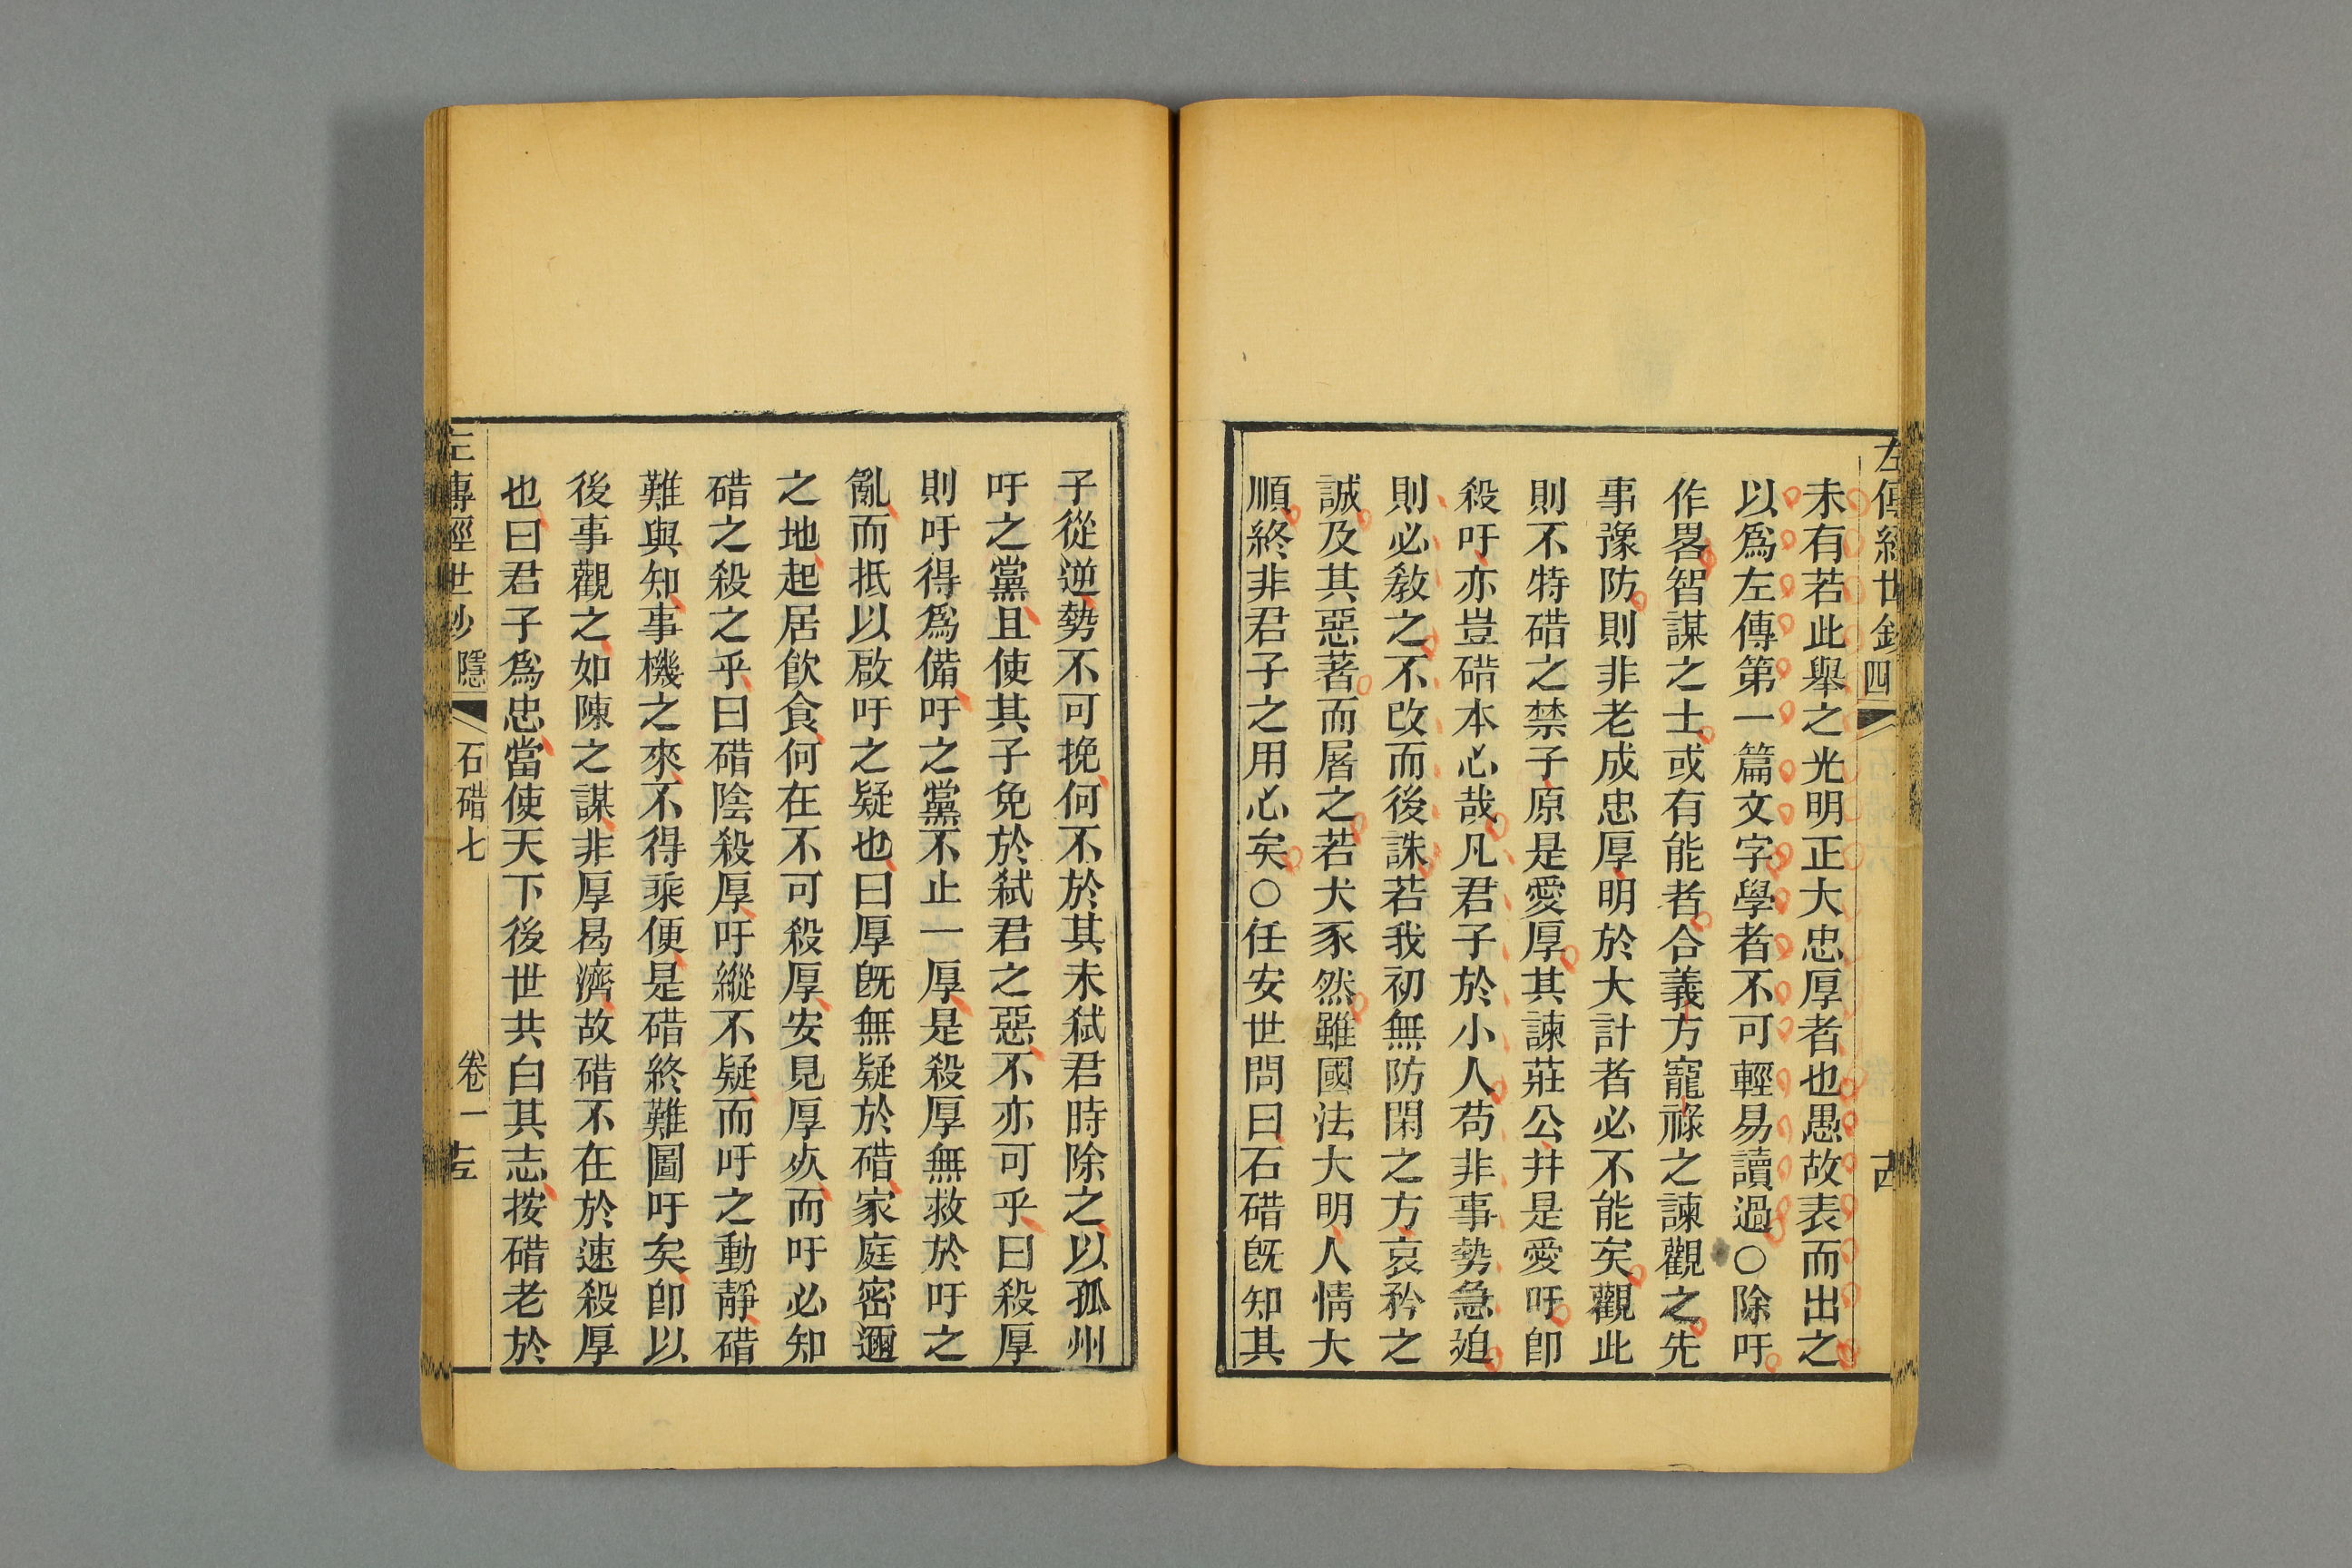 左傳經世鈔 四
未有若此舉之光明正大忠厚者也愚故表而出之
以爲左傳第一篇文字學者不可輕易讀過○除吁
作畧智謀之士或有能者合義方寵祿之諫觀之先
事豫防則非老成忠厚明於大計者必不能矣觀此
則不特碏之禁子原是愛厚其諫莊公井是愛吁卽
殺吁亦豈碏本心哉凡君子於小人苟非事勢急廹
則必敎之不改而後誅若我初無防閑之方哀矜之
誠及其惡著而屠之若犬豕然雖國法大明人情大
順終非君子之用心矣○任安世問曰石碏旣知其
子從逆勢不可挽何不於其未弑君時除之以孤州
吁之黨且使其子免於弑君之惡不亦可乎曰殺厚
則吁得爲備吁之黨不止一厚是殺厚無救於吁之
亂而抵以啟吁之疑也曰厚旣無疑於碏家庭密邇
之地起居飮食何在不可殺厚安見厚死而吁必知
碏之殺之乎曰碏陰殺厚吁縱不疑而吁之動靜碏
難與知事機之來不得乘便是碏終難圖吁矣卽以
後事觀之如陳之謀非厚曷濟故碏不在於速殺厚
也曰君子爲忠當使天下後世共白其志按碏老於
左傳經世鈔 隱 石碏七 卷一